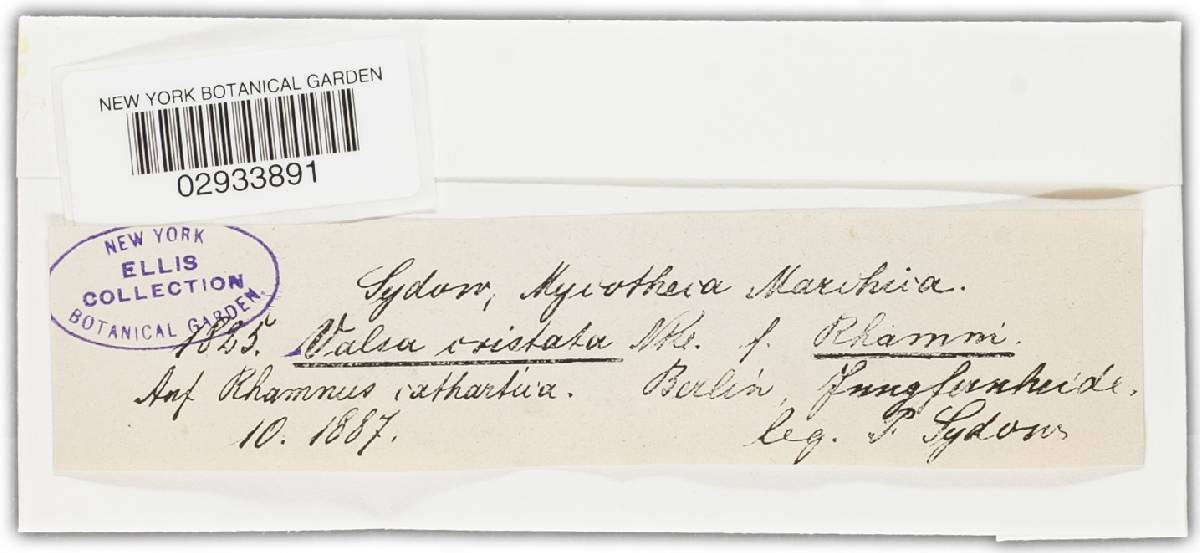 NEW YORK BOTANICAL GARDEN
02933891
NEW YORK
ELLIS
COLLECTION
BOTANICAL GARDEN.
Sydow, Mycotheca Marchica.
1825. Valsa cristata Nke. f. Rhamni.
Auf Rhamnus cathartica. Berlin, Jungfernheide.
10. 1887. leg. P Sydow